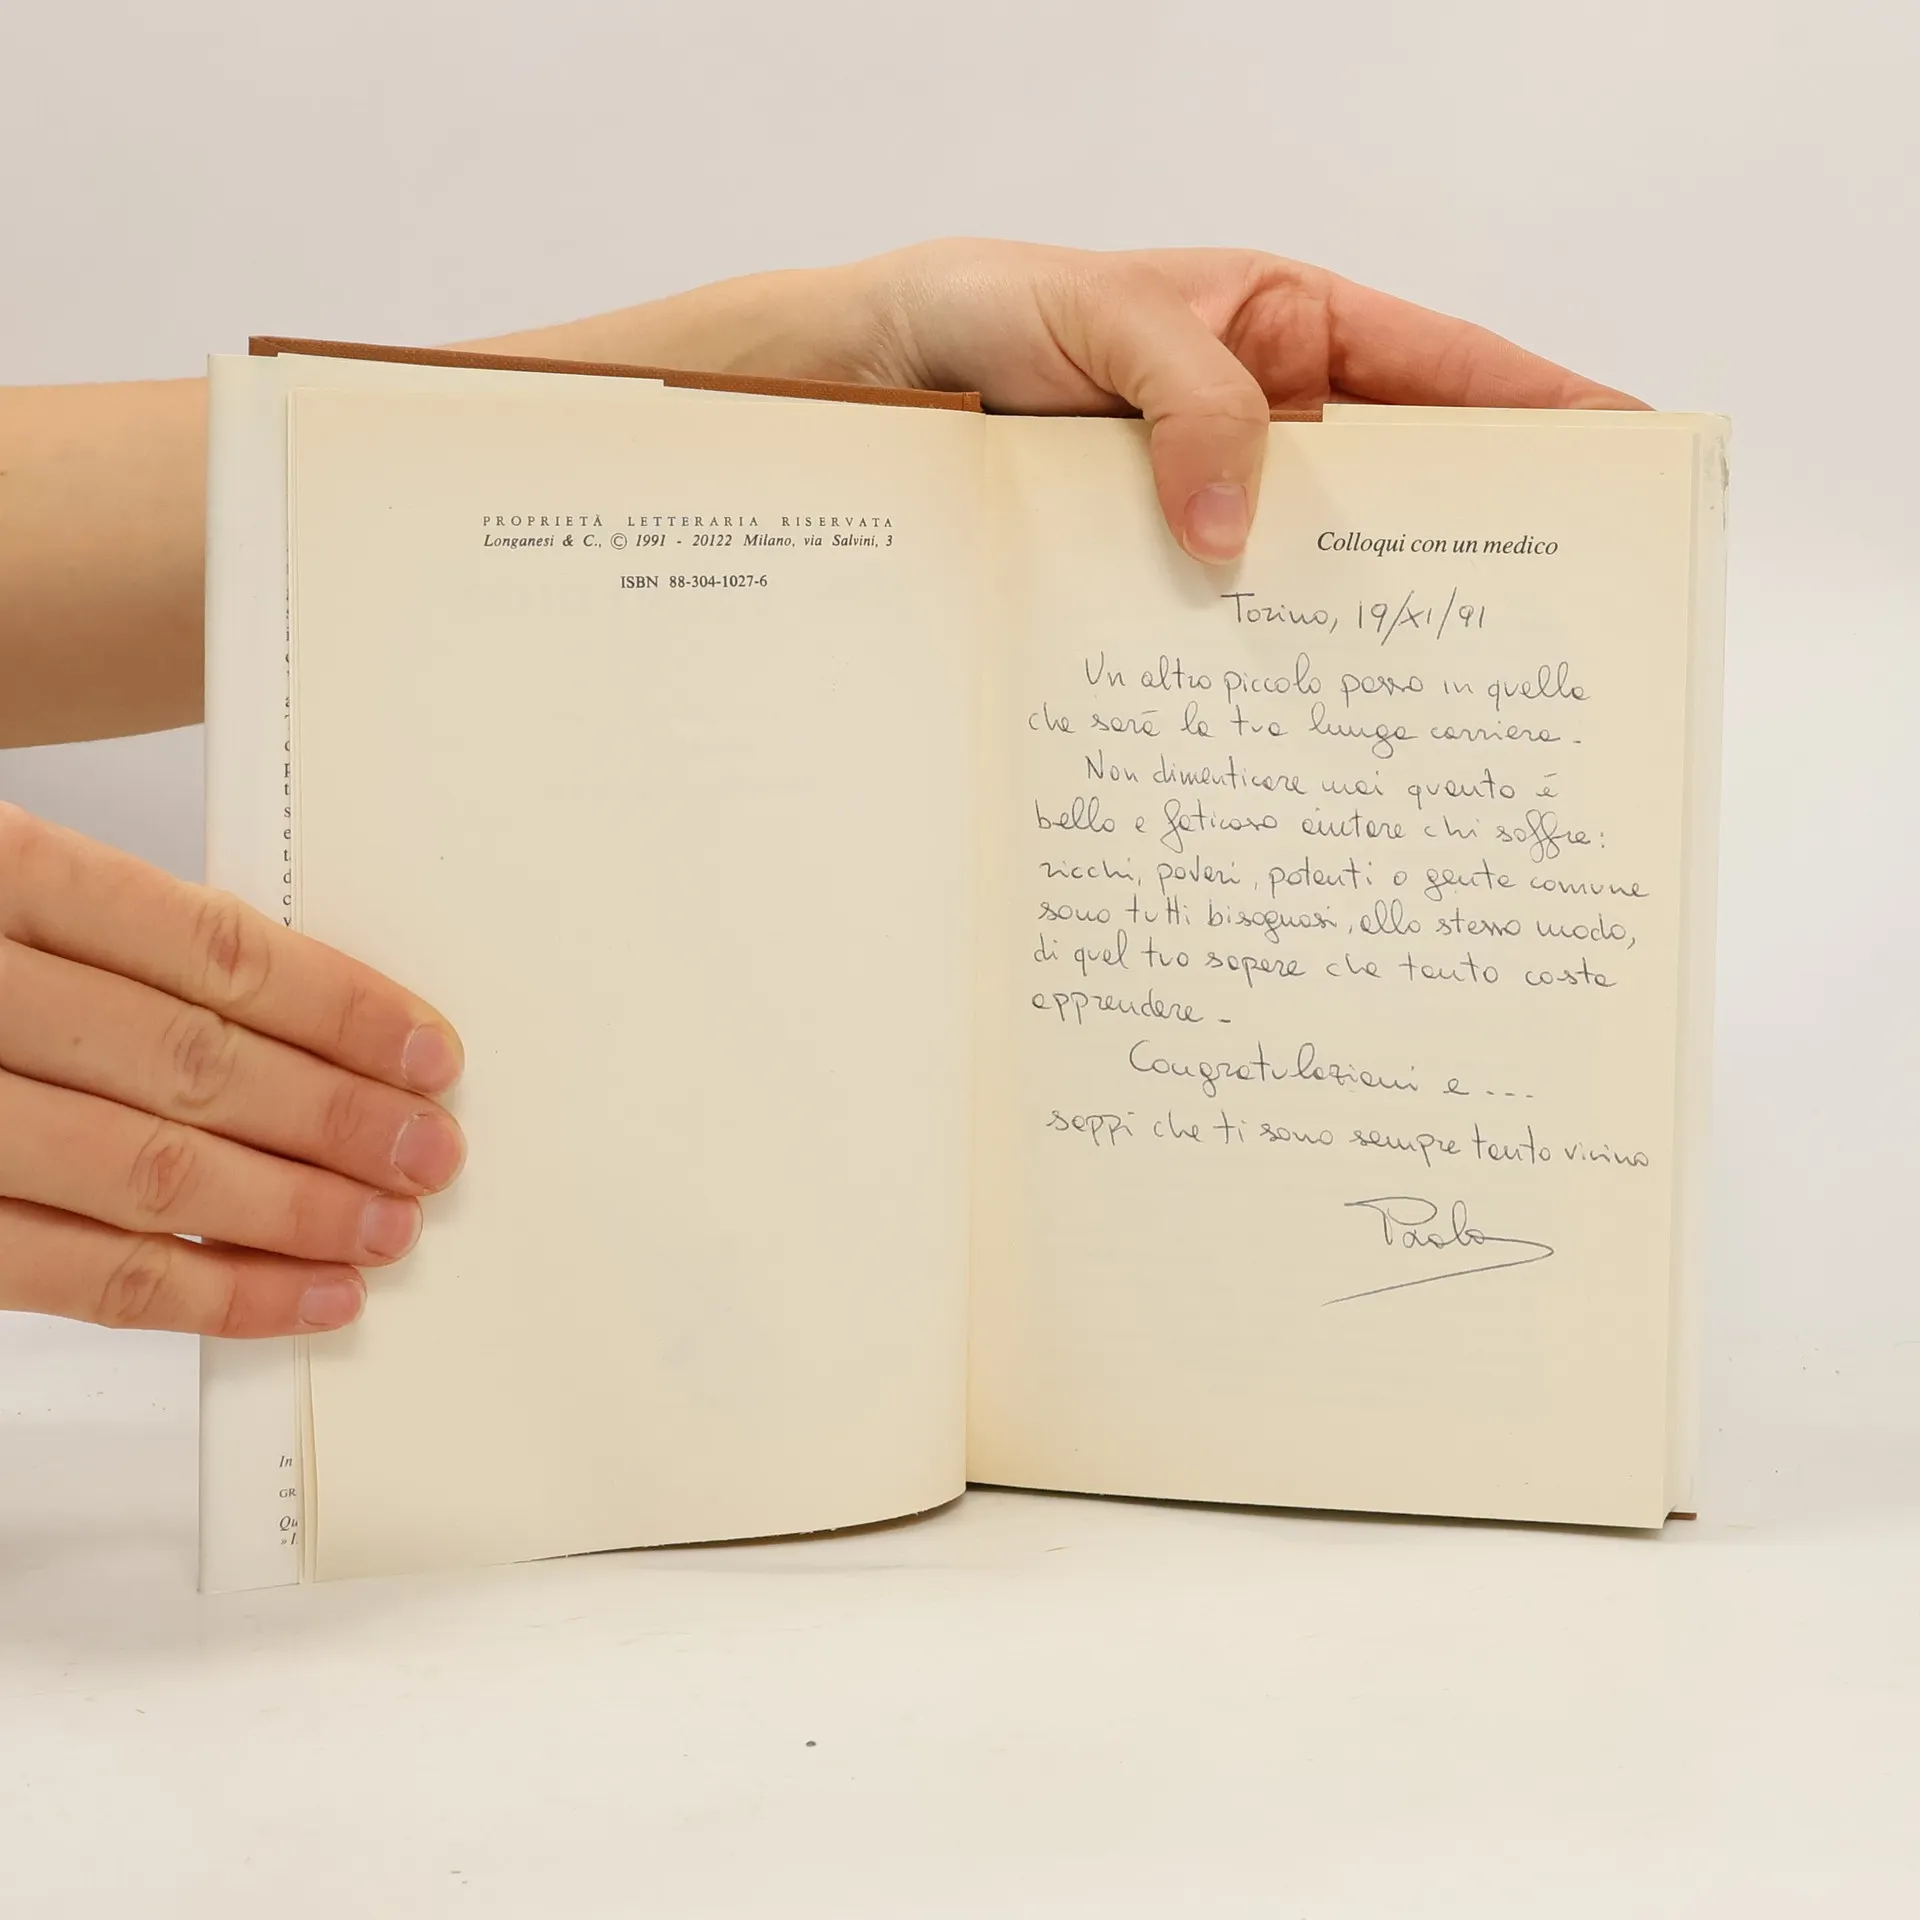 PROPRIETÀ LETTERARIA RISERVATA
Longanesi & C., © 1991 - 20122 Milano, via Salvini, 3
ISBN 88-304-1027-6
In
GR
Qu
» I
Colloqui con un medico
Torino, 19/XI/91
Un altro piccolo passo in quella
che sarà la tua lunga carriera -
Non dimenticare mai quanto è
bello e faticoso aiutare chi soffre:
ricchi, poveri, potenti o gente comune
sono tutti bisognosi, allo stesso modo,
di quel tuo sapere che tanto costa
apprendere -
Congratulazioni e ---
sappi che ti sono sempre tanto vicino
Paolo